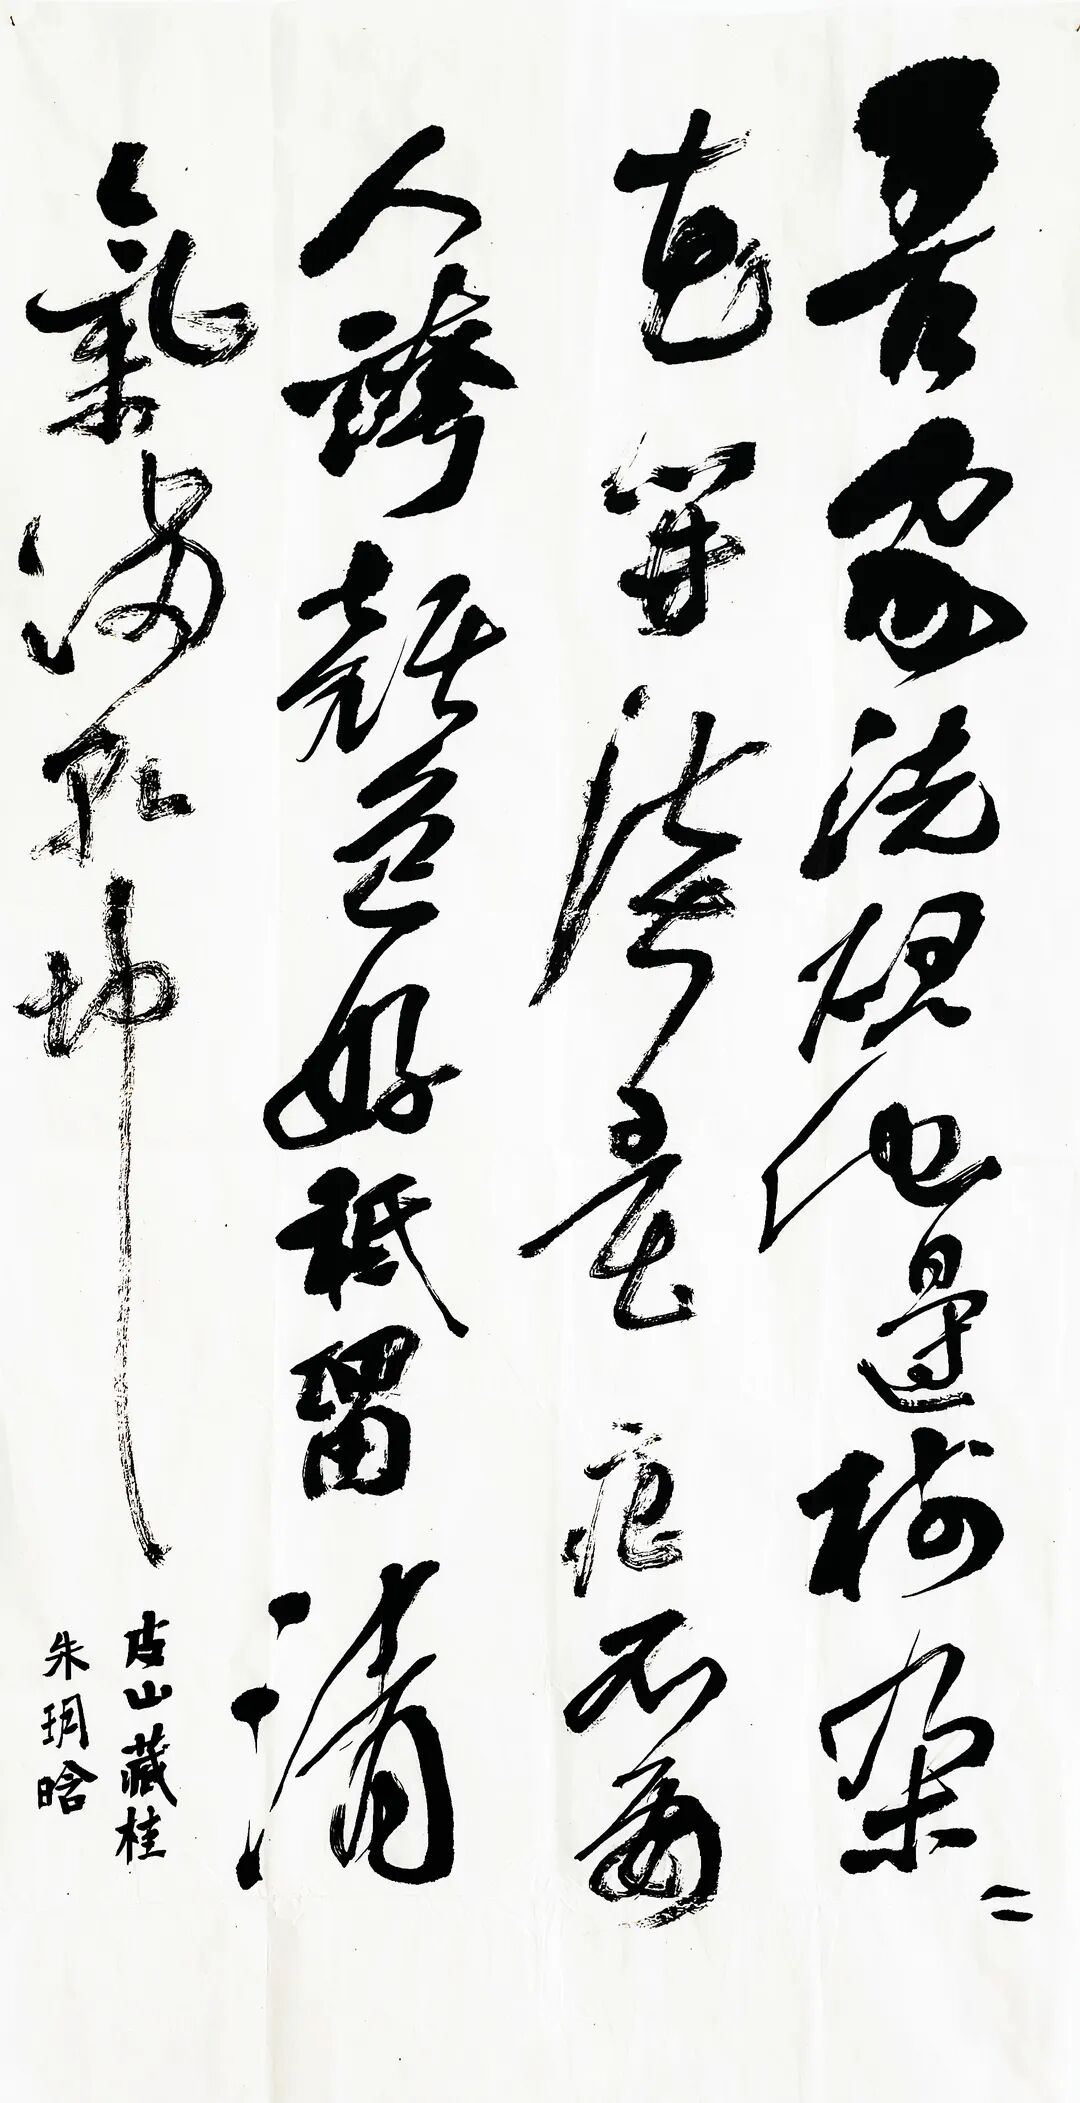 吾家洗硯池邊樹朵〻
花開淡墨痕不要
人誇顏色好祗留清
氣滿乾坤
皮山藏桂
朱玥晗